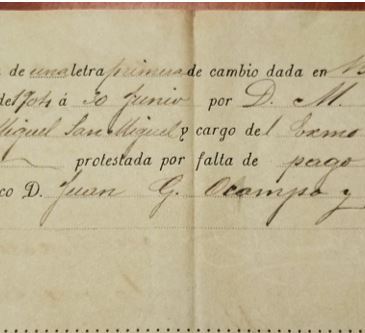 de una letra primera de cambio dada en
de 1904 á 30 Junio por D. M.
Miguel San Miguel y cargo del Exmo
protestada por falta de pago
co D. Juan G. Ocampo y